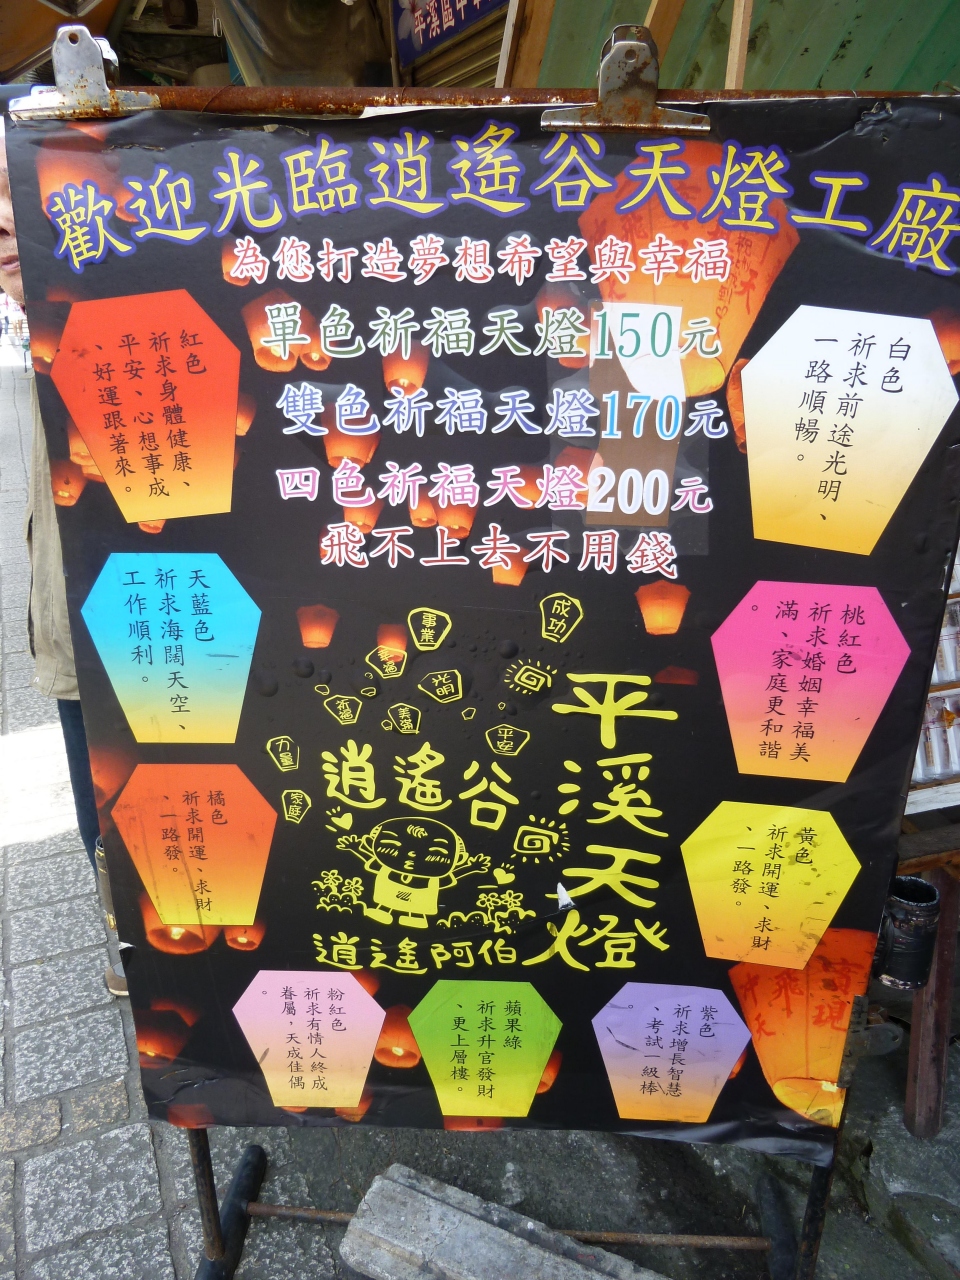 平溪區中
歡迎光臨逍遙谷天燈工廠
為您打造夢想希望與幸福
單色祈福天燈150元
雙色祈福天燈170元
四色祈福天燈200元
飛不上去不用錢
紅色
祈求身體健康、
平安、心想事成
、好運跟著來。
白色
祈求前途光明、
一路順暢。
天藍色
祈求海闊天空、
工作順利。
桃紅色
祈求婚姻幸福美
滿、家庭更和諧
。
橘色
祈求開運、求財
、一路發。
黃色
祈求開運、求財
、一路發。
成功
事業
幸福
光明
祈福
美滿
平安
力量
家庭
逍遙谷
平溪天燈
逍遙阿伯
粉紅色
祈求有情人終成
眷屬，天成佳偶
。
蘋果綠
祈求升官發財
、更上層樓。
紫色
祈求增長智慧
、考試一級棒
。